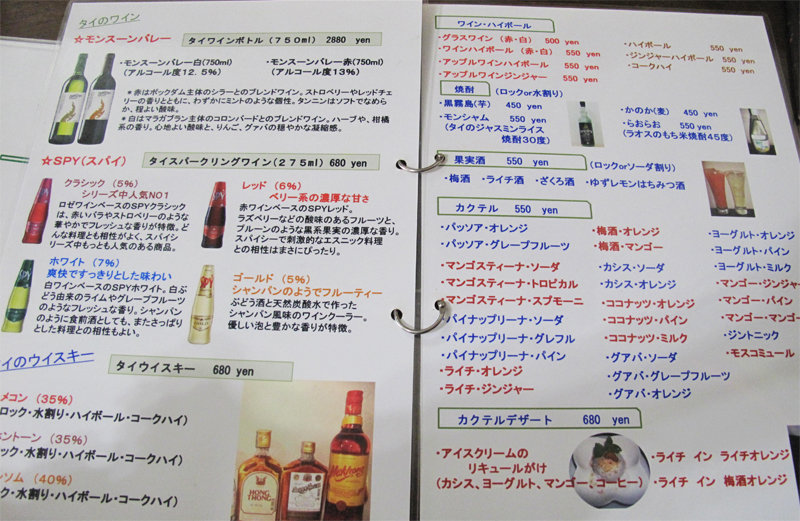 タイのワイン
☆モンスーンバレー
タイワインボトル(750ml) 2880 yen
・モンスーンバレー白(750ml)
(アルコール度12.5%)
・モンスーンバレー赤(750ml)
(アルコール度13%)
*赤はポックダム主体のシラーとのブレンドワイン。ストロベリーやレッドチェリーの香りとともに、わずかにミントのような個性。タンニンはソフトでなめらか、程よい酸味。
*白はマラガブラン主体のコロンバードとのブレンドワイン。ハーブや、柑橘系の香り。心地よい酸味と、りんご、グァバの穏やかな凝縮感。
☆SPY(スパイ)
タイスパークリングワイン(275ml) 680 yen
クラシック (5%)
シリーズ中人気NO1
ロゼワインベースのSPYクラシック
は、赤いバラやストロベリーのような
華やかでフレッシュな香りが特徴。ど
んな料理とも相性がよく、スパイシ
リーズ中もっとも人気のある商品。
レッド (6%)
ベリー系の濃厚な甘さ
赤ワインベースのSPYレッド。
ラズベリーなどの酸味のあるフルーツと、
プルーンのような黒系果実の濃厚な香り。
スパイシーで刺激的なエスニック料理
との相性はまさにぴったり。
ホワイト (7%)
爽快ですっきりとした味わい
白ワインベースのSPYホワイト。白ぶ
どう由来のライムやグレープフルーツ
のようなフレッシュな香り。シャンパン
のように食前酒としても、またさっぱり
とした料理との相性もよい。
ゴールド (5%)
シャンパンのようでフルーティー
ぶどう酒と天然炭酸水で作った
シャンパン風味のワインクーラー。
優しい泡と豊かな香りが特徴。
イのウイスキー
タイウイスキー 680 yen
メコン (35%)
ロック・水割り・ハイボール・コークハイ)
ントーン (35%)
ック・水割り・ハイボール・コークハイ)
ソム (40%)
ク・水割り・ハイボール・コークハイ)
HONG THONG
Mekhong
ワイン・ハイボール
・グラスワイン (赤・白) 500 yen
・ワインハイボール (赤・白) 550 yen
・アップルワインハイボール 550 yen
・アップルワインジンジャー 550 yen
・ハイボール 550 yen
・ジンジャーハイボール 550 yen
・コークハイ 550 yen
焼酎 (ロックor水割り)
・黒霧島(芋) 450 yen
・モンシャム 550 yen
(タイのジャスミンライス
焼酎30度)
・かのか(麦) 450 yen
・らおらお 550 yen
(ラオスのもち米焼酎45度)
果実酒 550 yen (ロックorソーダ割り)
・梅酒 ・ライチ酒 ・ざくろ酒 ・ゆずレモンはちみつ酒
カクテル 550 yen
・パッソア・オレンジ
・パッソア・グレープフルーツ
・マンゴスティーナ・ソーダ
・マンゴスティーナ・トロピカル
・マンゴスティーナ・スプモーニ
・パイナップリーナ・ソーダ
・パイナップリーナ・グレフル
・パイナップリーナ・パイン
・ライチ・オレンジ
・ライチ・ジンジャー
・梅酒・オレンジ
・梅酒・マンゴー
・カシス・ソーダ
・カシス・オレンジ
・ココナッツ・オレンジ
・ココナッツ・パイン
・ココナッツ・ミルク
・グアバ・ソーダ
・グアバ・グレープフルーツ
・グアバ・オレンジ
・ヨーグルト・オレンジ
・ヨーグルト・パイン
・ヨーグルト・ミルク
・マンゴー・ジンジャ
・マンゴー・パイン
・マンゴー・ミン
・ジントニック
・モスコミュール
カクテルデザート 680 yen
・アイスクリームの
リキュールがけ
(カシス、ヨーグルト、マンゴー、コーヒー)
・ライチ イン ライチオレンジ
・ライチ イン 梅酒オレンジ